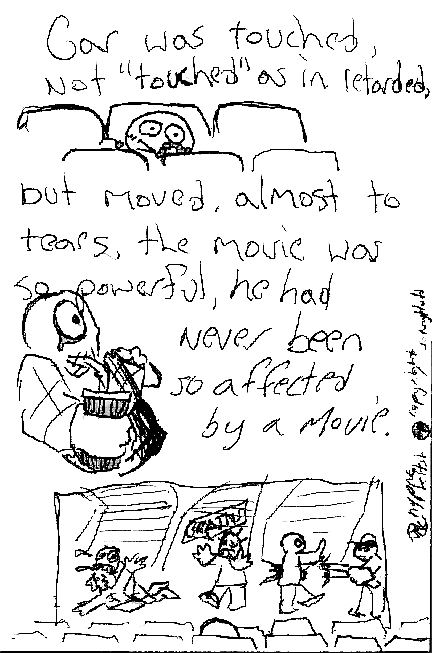 Gar was touched,
not "touched" as in retarded,
but moved, almost to
tears, the movie was
so powerful, he had
never been
so affected
by a movie.